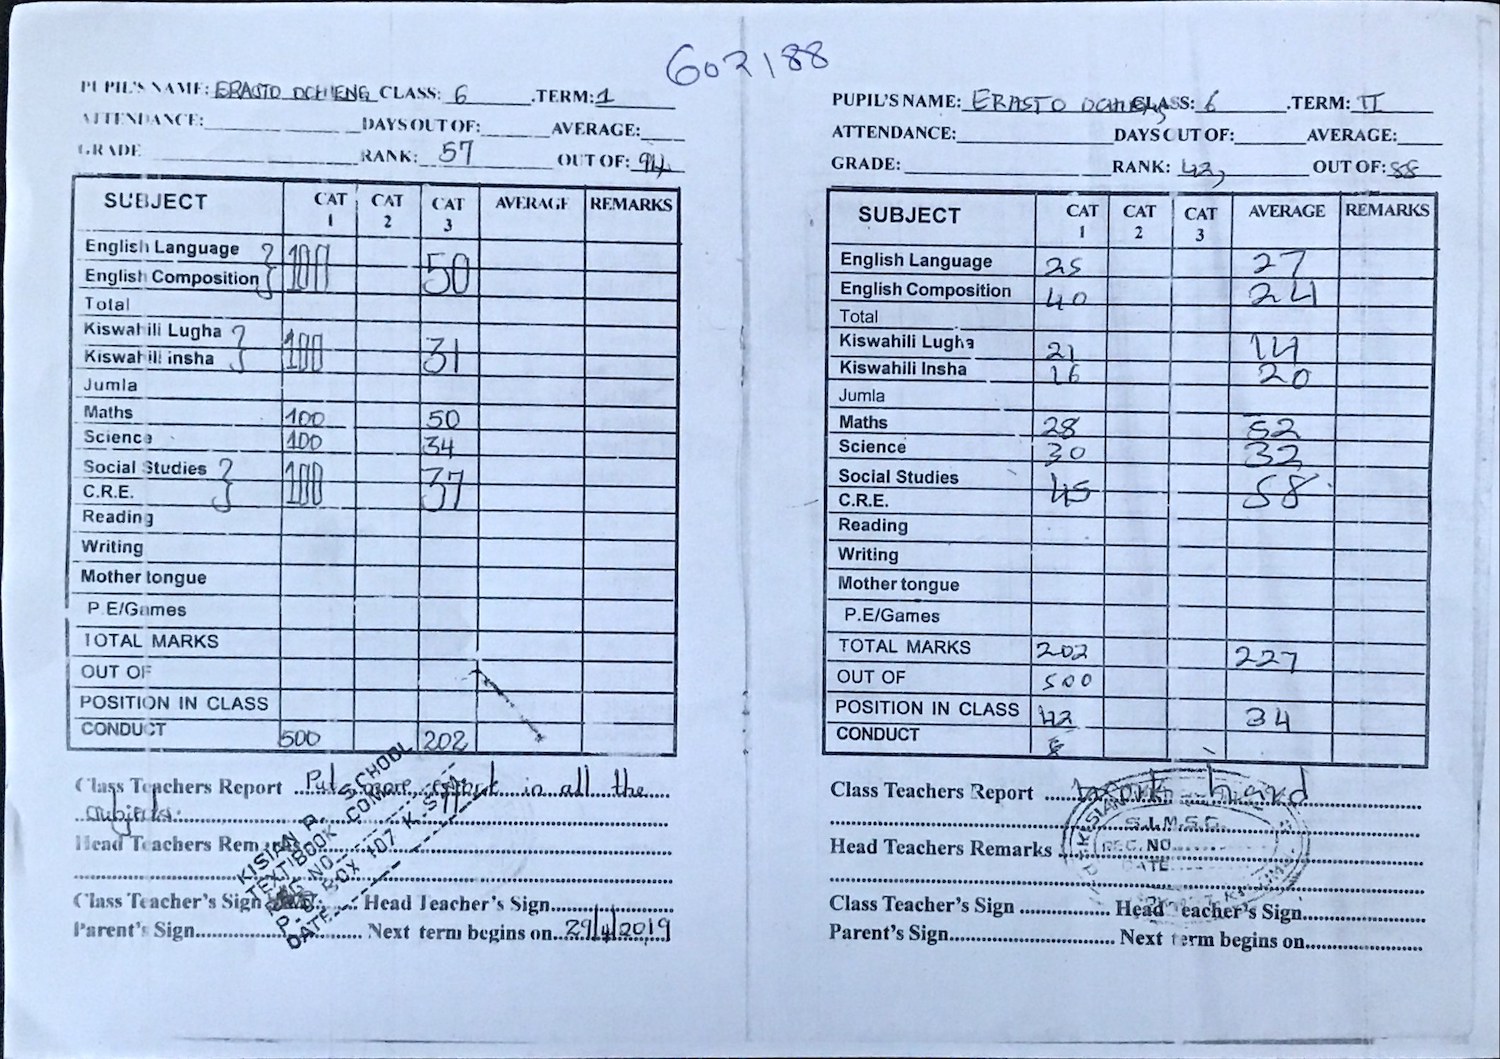 602188
PUPIL'S NAME: ERASTO OCHIENG CLASS: 6 .TERM: 1
ATTENDANCE: DAYS OUT OF: AVERAGE:
GRADE RANK: 57 OUT OF: 94
SUBJECT CAT 1 CAT 2 CAT 3 AVERAGE REMARKS
English Language
English Composition 100 50
Total
Kiswahili Lugha
Kiswahili insha 100 31
Jumla
Maths 100 50
Science 100 34
Social Studies
C.R.E. 100 37
Reading
Writing
Mother tongue
P.E/Games
TOTAL MARKS
OUT OF
POSITION IN CLASS
CONDUCT 500 202
Class Teachers Report Put more effort in all the
subjects.
Head Teachers Remarks
Class Teacher's Sign Head Teacher's Sign
Parent's Sign Next term begins on 29/4/2019
KISIAN P. SCHOOL
TEXTBOOK COMM
REG NO
P. O BOX 107 K-SM
DATE
PUPIL'S NAME: ERASTO OCHIENG CLASS: 6 .TERM: II
ATTENDANCE: DAYS OUT OF: AVERAGE:
GRADE: RANK: 42 OUT OF: 88
SUBJECT CAT 1 CAT 2 CAT 3 AVERAGE REMARKS
English Language 25 27
English Composition 40 24
Total
Kiswahili Lugha 21 14
Kiswahili Insha 16 20
Jumla
Maths 28 52
Science 30 32
Social Studies
C.R.E. 45 58
Reading
Writing
Mother tongue
P.E/Games
TOTAL MARKS 202 227
OUT OF 500
POSITION IN CLASS 42 34
CONDUCT
Class Teachers Report work hard
Head Teachers Remarks
Class Teacher's Sign Head Teacher's Sign
Parent's Sign Next term begins on
S.I.M.S.C.
REG. NO
DATE